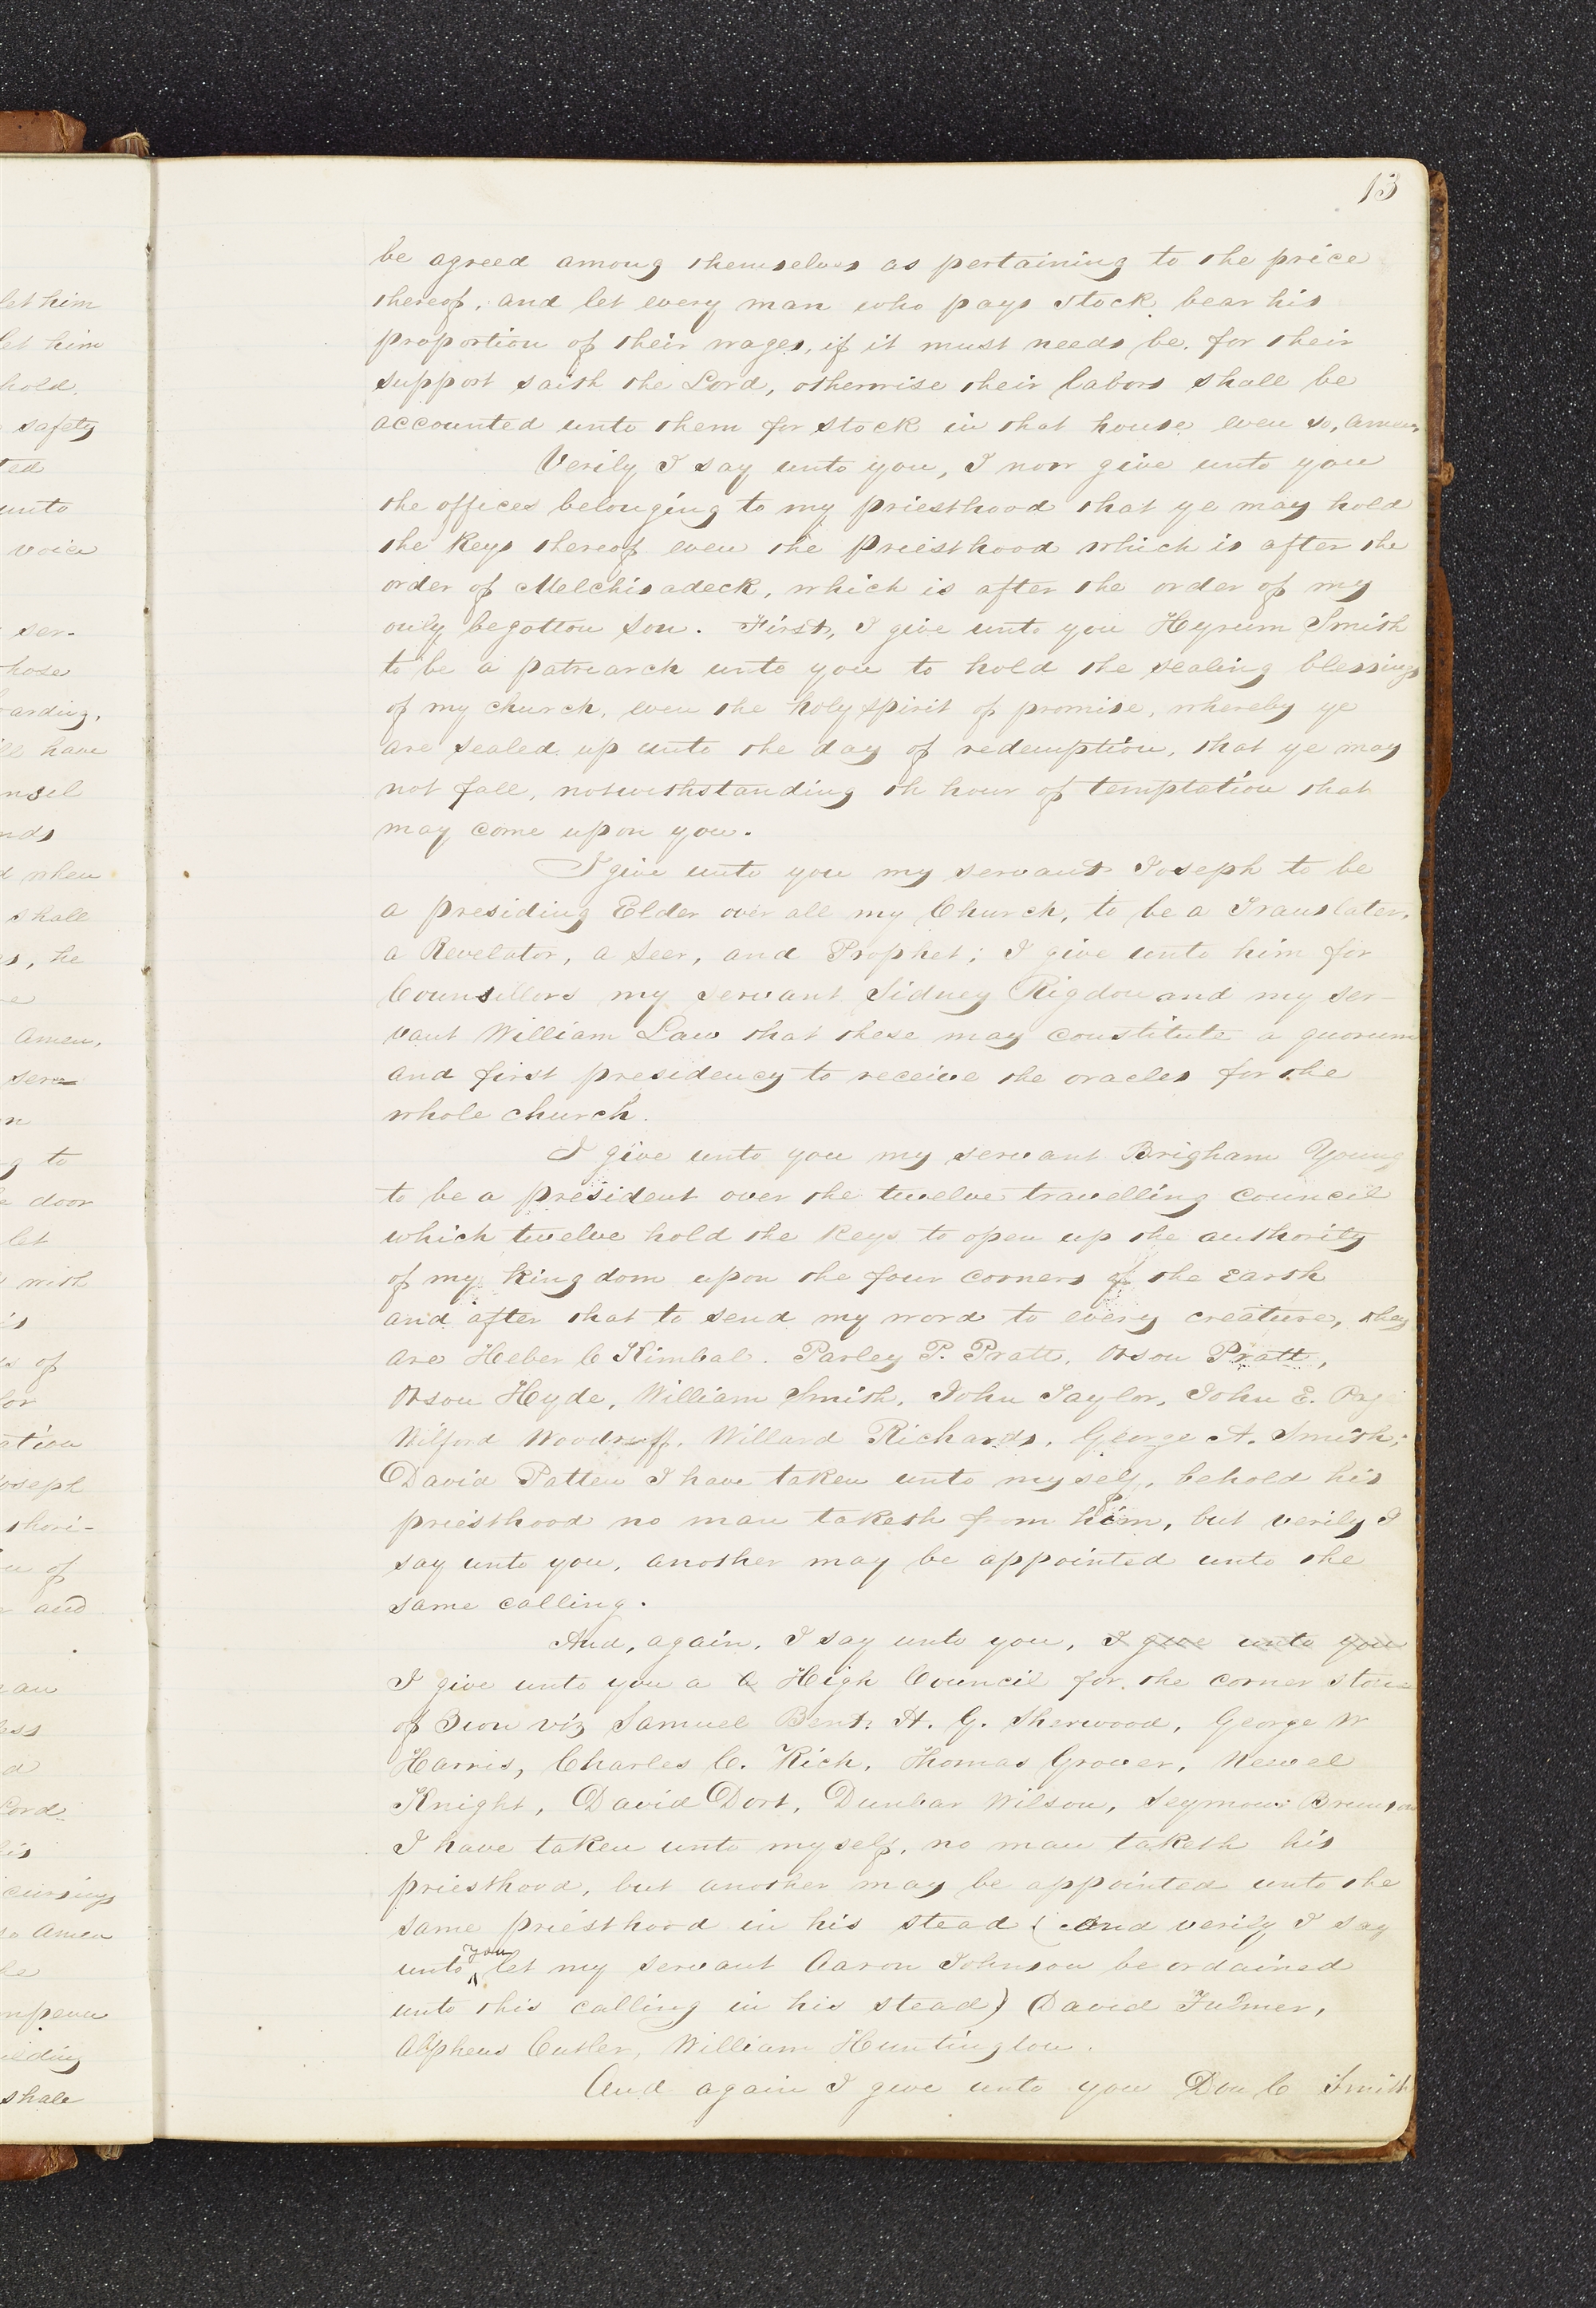 13
let him
let him
hold.
safety
ted
unto
voice
ser-
hose
arding,
ll have
nsel
nds
d when
shall
es, he
e
amen,
serv
n
g to
e door
let
with
is
s of
or
ation
oseph
thori-
n of
and
an
less
a
Lord.
his
cursings
so amen
he
mpenc
ilding
shall
be agreed among themselves as pertaining to the price
thereof, and let every man who pays stock bear his
proportion of their wages, if it must needs be. for their
support saith the Lord, otherwise their labors shall be
accounted unto them for stock in that house even so, amen,
Verily I say unto you, I now give unto you
the offices belonging to my priesthood that ye may hold
the Keys thereof even the priesthood which is after the
order of Melchisadeck, which is after the order of my
only begotton Son. First, I give unto you Hyrum Smith
to be a patriarch unto you to hold the sealing blessings
of my church, even the holy spirit of promise, whereby ye
are sealed up unto the day of redemption, that ye may
not fall, notwithstanding th hour of temptation that
may come upon you.
I give unto you my servant Joseph to be
a presiding Elder over all my Church, to be a Translater,
a Revelator, a Seer, and Prophet; I give unto him for
Counsellors my servant Sidney Rigdon and my ser-
vant William Law that these may constitute a quorum
and first presidency to receive the oracles for the
whole church.
I give unto you my servant Brigham Young
to be a president over the twelve travelling council
which twelve hold the keys to open up the authority
of my kingdom upon the four corners of the Earth
and after that to send my word to every creature, they
are Heber C Kimbal. Parley P. Pratt, Orson Pratt,
Orson Hyde, William Smith, John Taylor, John E. Page
Wilford Woodruff, Willard Richards, George A. Smith;
David Patten I have taken unto myself, behold his
priesthood no man taketh from him, but verily I
say unto you, another may be appointed unto the
same calling.
And, again, I say unto you, I give unto you
I give unto you a a High Council for the corner stone
of Zion viz Samuel Bent. H. G. Sherwood, George W
Harris, Charles C. Rich, Thomas Grover, Newel
Knight, David Dort, Dunbar Wilson, Seymour Brunson
I have taken unto myself, no man taketh his
priesthood, but another may be appointed unto the
same priesthood in his stead (and verily I say
unto you let my servant Aaron Johnson be ordained
unto this calling in his stead) David Fulmer,
Alpheus Cutler, William Huntington.
And again I give unto you Don C Smith